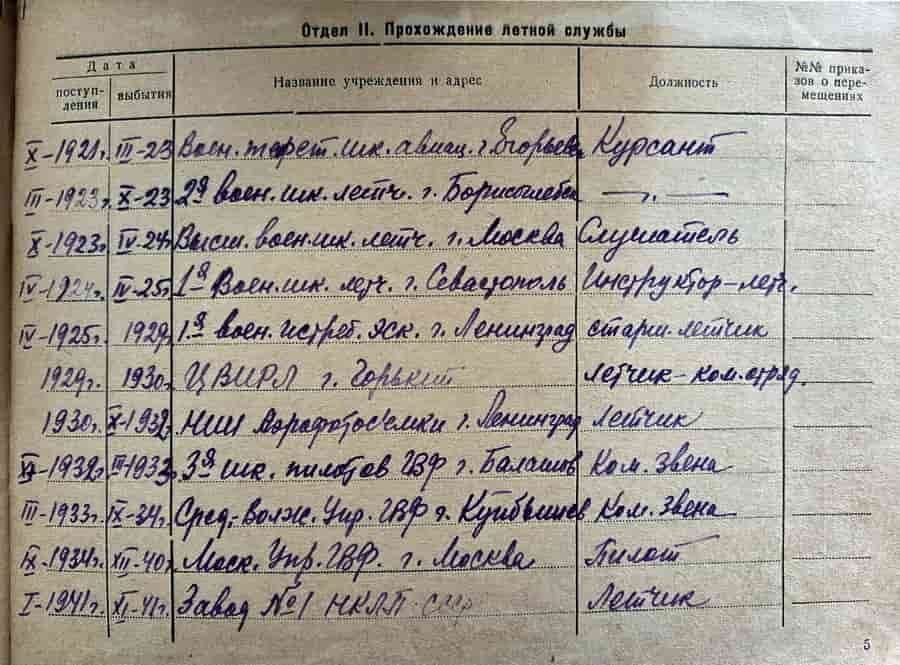 Отдел II. Прохождение летной службы
Дата
поступления выбытия Название учреждения и адрес Должность №№ приказов о перемещениях
X-1921г. III-23 Воен. теорет. шк. авиац. г. Егорьевск Курсант
III-1923г. X-23 2я воен. шк. летч. г. Борисоглебск —"—
X-1923г. IV-24г. Высш. воен. шк. летч. г. Москва Слушатель
IV-1924г. IV-25г. 1я Воен. шк. летч. г. Севастополь Инструктор-летч.
IV-1925г. 1929г. 1.я воен. истреб. эск. г. Ленинград старш. летчик
1929г. 1930г. ЦВИРЛ г. Горький летчик-ком. отряд.
1930г. 1932г. НИИ Аэрофотос'емки г. Ленинград Летчик
1932г. III-1933г. 3я шк. пилотов ГВФ г. Балашов Ком. звена
III-1933г. IX-34г. Сред.-Волж. Упр. ГВФ г. Куйбышев Ком. звена
IX-1934г. XII-40г. Моск. Упр. ГВФ. г. Москва Пилот
I-1941г. XI-41г. Завод №1 НКАП СССР Летчик
5